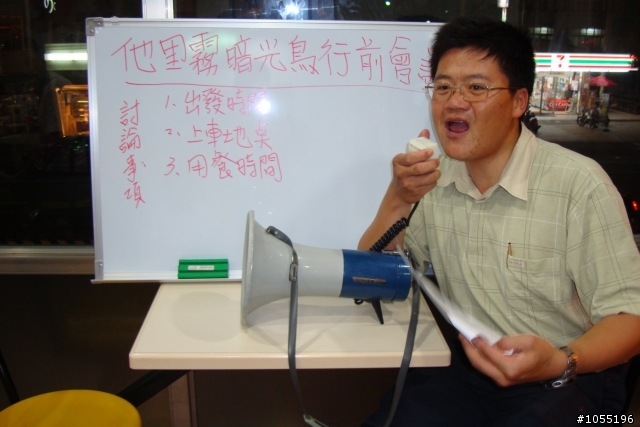 他里霧暗光鳥行前會議
討論事項
1. 出發時間
2. 上車地点
3. 用餐時間
7
#1055196